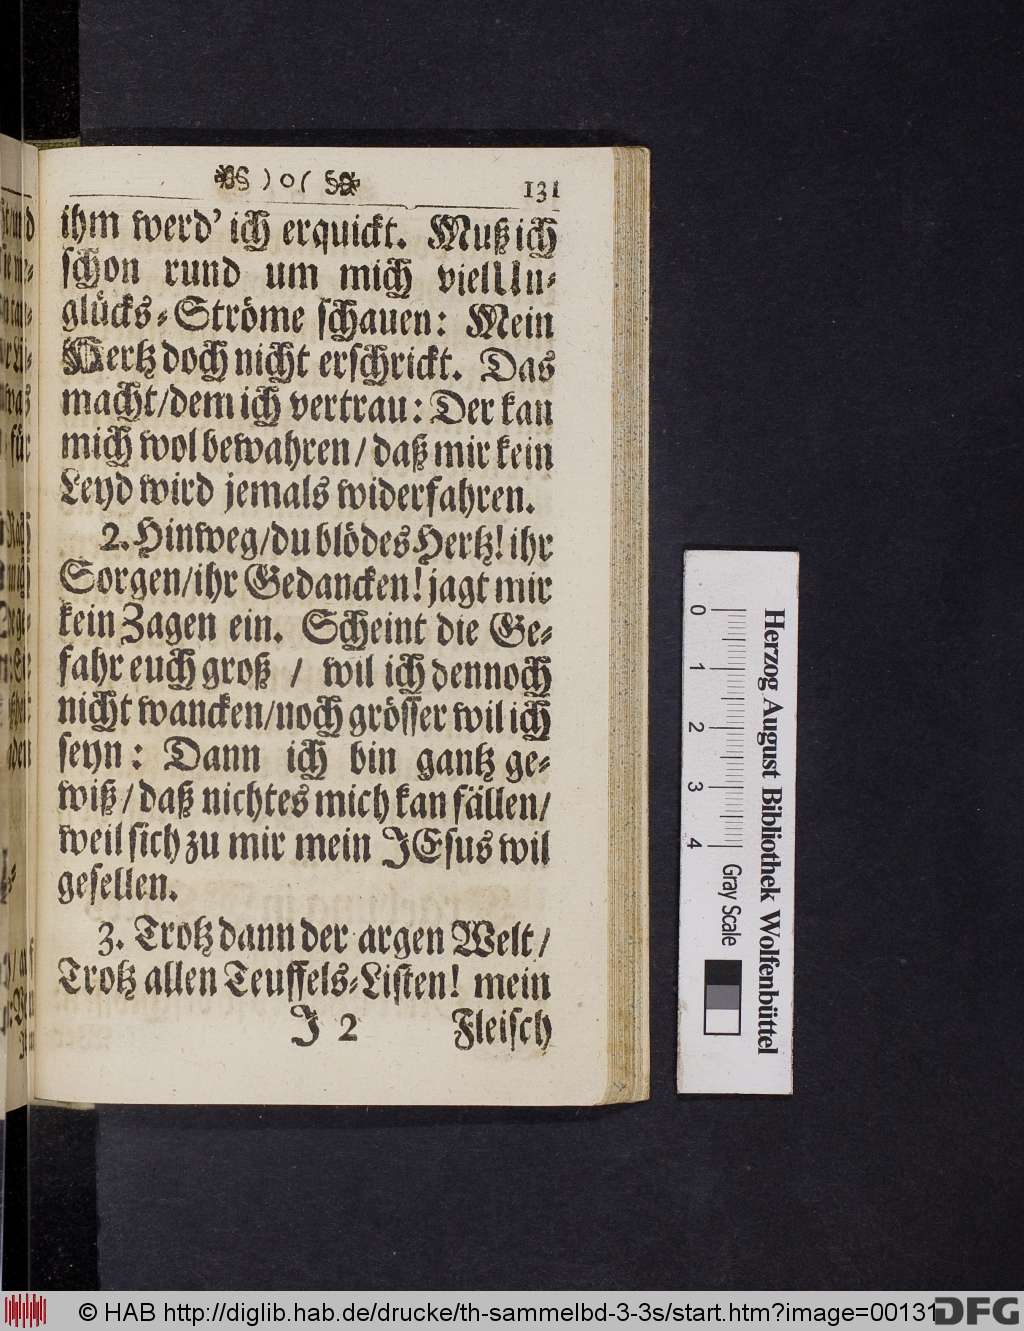 ) o (
131
ihm werd’ ich erquickt. Muß ich
schon rund um mich viel Un-
glücks-Ströme schauen: Mein
Hertz doch nicht erschrickt. Das
macht/dem ich vertrau: Der kan
mich wol bewahren / daß mir kein
Leyd wird jemals widerfahren.
2. Hinweg/du blödes Hertz! ihr
Sorgen/ihr Gedancken! jagt mir
kein Zagen ein. Scheint die Ge-
fahr euch groß / wil ich dennoch
nicht wancken/noch grösser wil ich
seyn: Dann ich bin gantz ge-
wiß / daß nichtes mich kan fällen/
weil sich zu mir mein JEsus wil
gesellen.
3. Trotz dann der argen Welt /
Trotz allen Teuffels-Listen! mein
J 2
Fleisch
Herzog August Bibliothek Wolfenbüttel
0 1 2 3 4
Gray Scale
© HAB http://diglib.hab.de/drucke/th-sammelbd-3-3s/start.htm?image=00131
DFG